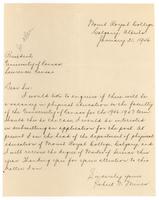 Mount Royal College
Calgary, Alberta
January 31, 1946
President
University of Kansas
Lawrence Kansas
Dear Sir:
I would like to enquire if there will be
vacancy in physical education on the faculty
of the University of Kansas for the 1946-1947 term.
Should this be the case, I would be interested
in submitting an application for the post. At
present I am the head of the department of physical
education of Mount Royal College, Calgary, and
I will receive the degree of in this
year. Thanking you for your attention to this
matter I am
Sincerely yours
Robert F.